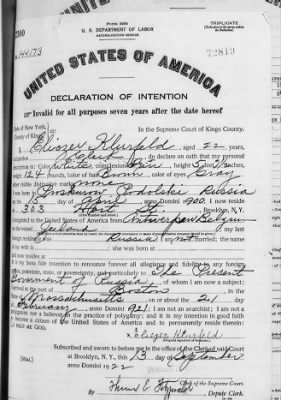 TRIPLICATE
U. S. DEPARTMENT OF LABOR
NATURALIZATION SERVICE
No. 144173
72819
UNITED STATES OF AMERICA
DECLARATION OF INTENTION
Invalid for all purposes seven years after the date hereof
State of New York,
In the Supreme Court of Kings County.
Eliezer Klurfeld, aged 22 years,
occupation Clerk, do declare on oath that my personal
description is: Color White, complexion Fair, height 5 feet inches,
weight 124 pounds, color of hair Brown, color of eyes Gray
other visible distinctive marks none
I was born in Proskurov Podolski Russia
on the 15 day of April, anno Domini 1900; I now reside
at 303 St., Brooklyn, N.Y.
I emigrated to the United States of America from Antwerp Belgium
on the vessel Zeeland; my last
foreign residence was Russia; I am not married; the name
she was born in
and now resides at
It is my bona fide intention to renounce forever all allegiance and fidelity to any foreign
prince, potentate, state, or sovereignty, and particularly to The Present
Government of Russia, of whom I am now a subject;
I arrived at the port of Boston, in the
State of Massachusetts, on or about the 21 day
of February, anno Domini 1921; I am not an anarchist; I am not a
polygamist nor a believer in the practice of polygamy; and it is my intention in good faith
to become a citizen of the United States of America and to permanently reside therein:
SO HELP ME GOD.
x Eliezer Klurfeld
(Original signature of declarant)
Subscribed and sworn to before me in the office of the Clerk of said Court
[SEAL] at Brooklyn, N.Y., this 13 day of September
anno Domini 1922
Clerk of the Supreme Court.
By Deputy Clerk.